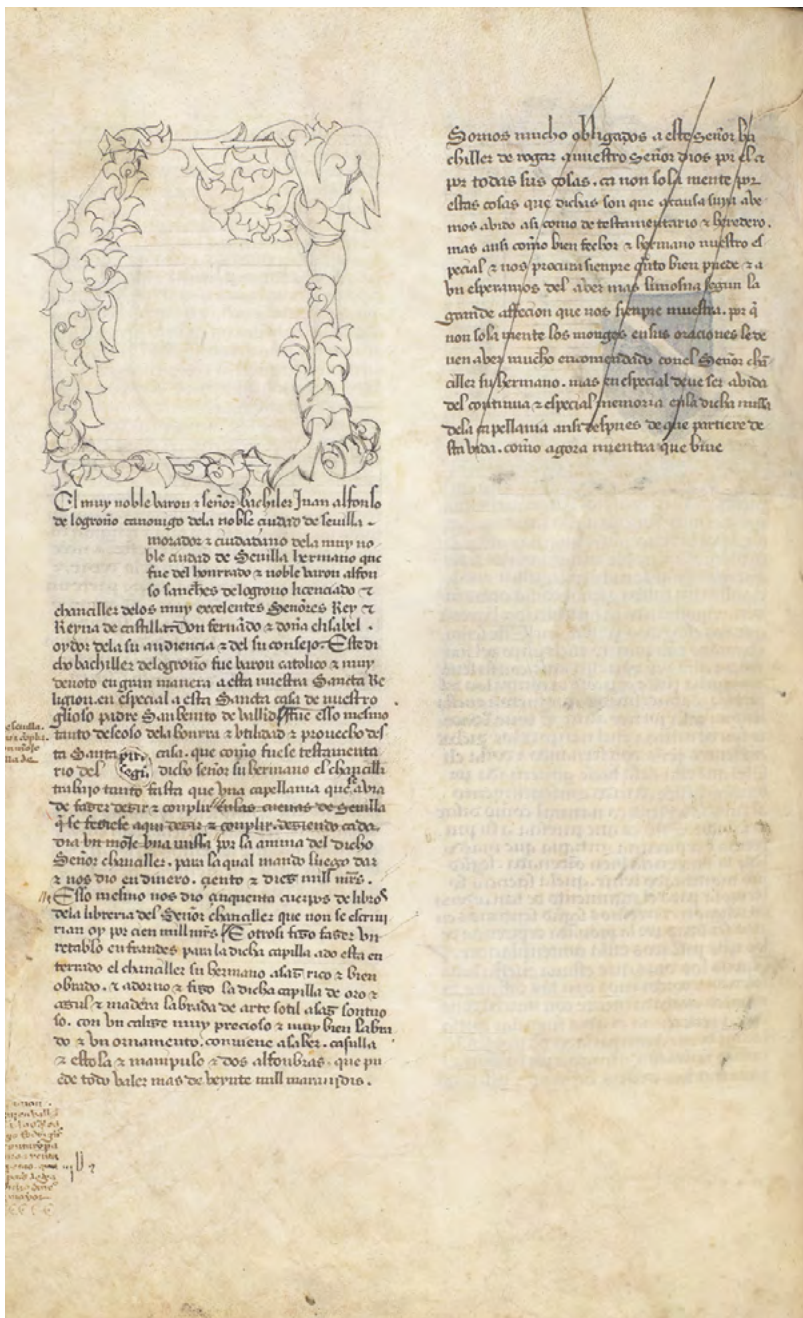 El muy noble varon & señor bachiler Juan alfonso
de logroño canonigo dela noble ciudad de sevilla -
morador & ciudadano dela muy no
ble ciudad de Sevilla hermano que
fue del honrrado & noble varon alfon
so sanches de logroño licenciado &
chanciller delos muy excelentes Señores Rey &
Reyna de castilla Don fernãdo & doña elisabel .
oydor dela su audiencia & del su consejo. Este di
cho bachiller delogroño fue varon catolico & muy
devoto en gran manera a esta nuestra Sancta Re
ligion. en especial a esta Sancta casa de nuestro
glioso padre San benito de vallid fue esso mesmo
tanto deseoso dela honrra & utilidad & provecho des
ta Santa casa. que como fuese testamenta
rio del dicho señor su hermano el chancill
trabajo tanto fasta que una capellania que avia
de faser desir & conplir en las cuevas de Sevilla
q̃ se fesiese aqui desir & conplir. desiendo cada
dia un mõje una missa por la anima del dicho
Señor chanciller. para la qual mando luego dar
& nos dio en dinero. ciento & dies mill mrs.
Esso mesmo nos dio cinquenta cuerpos de libros
dela libreria del Señor chanciller que non se escrivi
rian oy por cien mill mrs E otrosi fiso faser un
retablo en frandes para la dicha capilla ado esta en
terrado el chanciller su hermano asas rico & bien
obrado. & adorno & fiso la dicha capilla de oro &
asul & madera labrada de arte sotil asas sontuo
so. con un calise muy precioso & muy bien labra
do & un ornamento. conviene a saber. casulla
& estola & manipulo & dos alfonbras. que pu
ede todo valer mas de veynte mill maravedis.
Somos mucho obligados a este Señor ba
chiller de rogar a nuestro Señor dios por el &
por todas sus cosas. ca non sola mente por
estas cosas que dichas son que a causa suya ave
mos avido asi como de testamentario & heredero.
mas ansi como bien fechor & hermano nuestro es
pecial & nos procura sienpre q̃nto bien puede & a
un esperamos del aver mas limosna segun la
grande affecion que nos sienpre muestra. por q̃
non sola mente los monges en sus oraciones le de
ven aver mucho encomendado con el Señor chã
ciller su hermano. mas en especial deve ser avida
del continua & especial memoria en la dicha missa
dela capellania ansi despues de que partiere de
sta vida. como agora mientra que bive